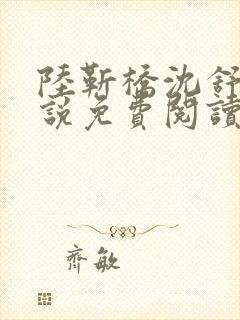 陸靳橋沈舒
說免費閱讀
齊敏